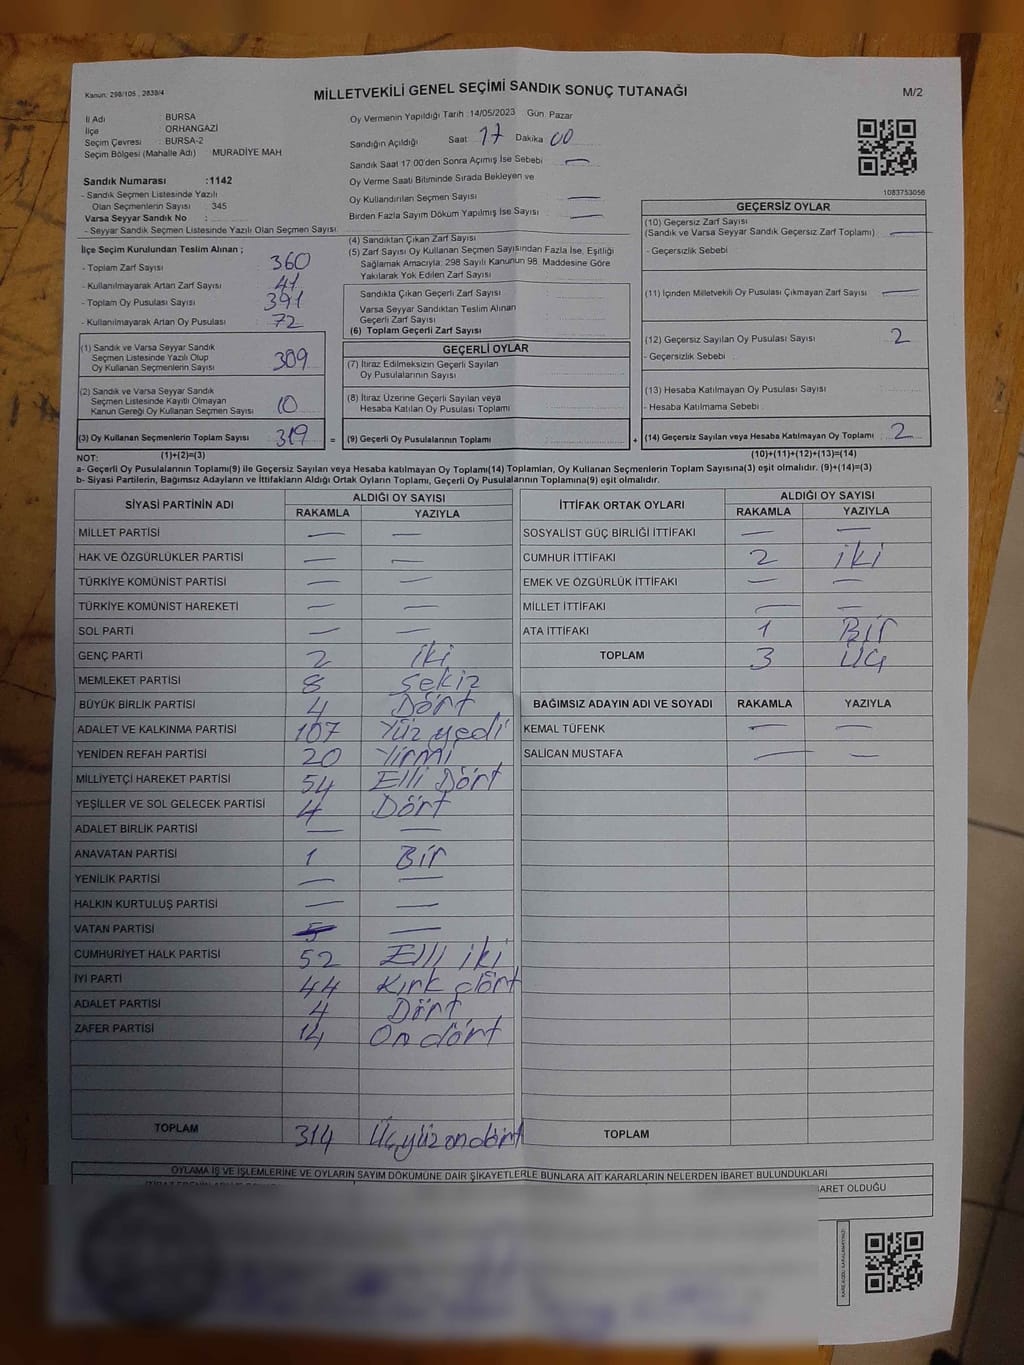 Kanun: 298/105 , 2839/4
MİLLETVEKİLİ GENEL SEÇİMİ SANDIK SONUÇ TUTANAĞI
M/2
İl Adı : BURSA
İlçe : ORHANGAZİ
Seçim Çevresi : BURSA-2
Seçim Bölgesi (Mahalle Adı) MURADİYE MAH
Oy Vermenin Yapıldığı Tarih :14/05/2023 Gün: Pazar
Sandığın Açıldığı Saat 17 Dakika 00
Sandık Saat 17.00'den Sonra Açımış İse Sebebi : —
Oy Verme Saati Bitiminde Sırada Bekleyen ve
Oy Kullandırılan Seçmen Sayısı : —
Birden Fazla Sayım Döküm Yapılmış İse Sayısı : —
1083753056
Sandık Numarası :1142
- Sandık Seçmen Listesinde Yazılı
Olan Seçmenlerin Sayısı : 345
Varsa Seyyar Sandık No :
- Seyyar Sandık Seçmen Listesinde Yazılı Olan Seçmen Sayısı:
İlçe Seçim Kurulundan Teslim Alınan ;
- Toplam Zarf Sayısı : 360
- Kullanılmayarak Artan Zarf Sayısı : 41
- Toplam Oy Pusulası Sayısı : 391
- Kullanılmayarak Artan Oy Pusulası : 72
(1) Sandık ve Varsa Seyyar Sandık
Seçmen Listesinde Yazılı Olup
Oy Kullanan Seçmenlerin Sayısı : 309
(2) Sandık ve Varsa Seyyar Sandık
Seçmen Listesinde Kayıtlı Olmayan
Kanun Gereği Oy Kullanan Seçmen Sayısı : 10
(3) Oy Kullanan Seçmenlerin Toplam Sayısı : 319
(1)+(2)=(3)
(4) Sandıktan Çıkan Zarf Sayısı :
(5) Zarf Sayısı Oy Kullanan Seçmen Sayısından Fazla İse, Eşitliği
Sağlamak Amacıyla; 298 Sayılı Kanunun 98. Maddesine Göre
Yakılarak Yok Edilen Zarf Sayısı :
Sandıkta Çıkan Geçerli Zarf Sayısı :
Varsa Seyyar Sandıktan Teslim Alınan
Geçerli Zarf Sayısı :
(6) Toplam Geçerli Zarf Sayısı :
GEÇERLİ OYLAR
(7) İtiraz Edilmeksizin Geçerli Sayılan
Oy Pusulalarının Sayısı :
(8) İtiraz Üzerine Geçerli Sayılan veya
Hesaba Katılan Oy Pusulası Toplamı :
= (9) Geçerli Oy Pusulalarının Toplamı :
GEÇERSİZ OYLAR
(10) Geçersiz Zarf Sayısı
(Sandık ve Varsa Seyyar Sandık Geçersiz Zarf Toplamı) : —
- Geçersizlik Sebebi :
(11) İçinden Milletvekili Oy Pusulası Çıkmayan Zarf Sayısı : —
(12) Geçersiz Sayılan Oy Pusulası Sayısı : 2
- Geçersizlik Sebebi :
(13) Hesaba Katılmayan Oy Pusulası Sayısı :
- Hesaba Katılmama Sebebi :
+ (14) Geçersiz Sayılan veya Hesaba Katılmayan Oy Toplamı : 2
(10)+(11)+(12)+(13)=(14)
NOT:
a- Geçerli Oy Pusulalarının Toplamı(9) ile Geçersiz Sayılan veya Hesaba katılmayan Oy Toplamı(14) Toplamları, Oy Kullanan Seçmenlerin Toplam Sayısına(3) eşit olmalıdır. (9)+(14)=(3)
b- Siyasi Partilerin, Bağımsız Adayların ve İttifakların Aldığı Ortak Oyların Toplamı, Geçerli Oy Pusulalarının Toplamına(9) eşit olmalıdır.
SİYASİ PARTİNİN ADI ALDIĞI OY SAYISI
RAKAMLA YAZIYLA
MİLLET PARTİSİ — —
HAK VE ÖZGÜRLÜKLER PARTİSİ — —
TÜRKİYE KOMÜNİST PARTİSİ — —
TÜRKİYE KOMÜNİST HAREKETİ — —
SOL PARTİ — —
GENÇ PARTİ 2 iki
MEMLEKET PARTİSİ 8 sekiz
BÜYÜK BİRLİK PARTİSİ 4 Dört
ADALET VE KALKINMA PARTİSİ 107 Yüz yedi
YENİDEN REFAH PARTİSİ 20 Yirmi
MİLLİYETÇİ HAREKET PARTİSİ 54 Elli Dört
YEŞİLLER VE SOL GELECEK PARTİSİ 4 Dört
ADALET BİRLİK PARTİSİ — —
ANAVATAN PARTİSİ 1 Bir
YENİLİK PARTİSİ — —
HALKIN KURTULUŞ PARTİSİ — —
VATAN PARTİSİ — —
CUMHURİYET HALK PARTİSİ 52 Elli iki
İYİ PARTİ 44 Kırk dört
ADALET PARTİSİ 4 Dört
ZAFER PARTİSİ 14 On dört
TOPLAM 314 Üçyüzondört
İTTİFAK ORTAK OYLARI ALDIĞI OY SAYISI
RAKAMLA YAZIYLA
SOSYALİST GÜÇ BİRLİĞİ İTTİFAKI — —
CUMHUR İTTİFAKI 2 iki
EMEK VE ÖZGÜRLÜK İTTİFAKI — —
MİLLET İTTİFAKI — —
ATA İTTİFAKI 1 Bir
TOPLAM 3 Üç
BAĞIMSIZ ADAYIN ADI VE SOYADI RAKAMLA YAZIYLA
KEMAL TÜFENK — —
SALİCAN MUSTAFA — —
TOPLAM
OYLAMA İŞ VE İŞLEMLERİNE VE OYLARIN SAYIM DÖKÜMÜNE DAİR ŞİKAYETLERLE BUNLARA AİT KARARLARIN NELERDEN İBARET BULUNDUKLARI
BARET OLDUĞU